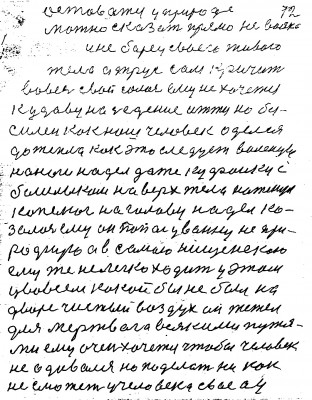 72
ветовати у природе
можно сказат прямо не варка
и не барец своево живого
тела а трус сам кричит
вовес свой голос ему не хочетц
куда ву на едение итти но би-
силен как наш человек оделся
до тепла как это следует валенцы
на ноги надел даже куфайку с
балильком на верх тела натянул
капелюх на голову надел ка-
залос ему он попал у ванну не при-
родную а в самаю нищенскою
ему же нелегко ходит у этом
у вовсем какой бы не был на
дворе чистый воздух он тяжел
для мертвага всякими путя-
ми ему очен хочетц чтобы человек
не одивался но поделат ни как
не сможет у человека свое а у